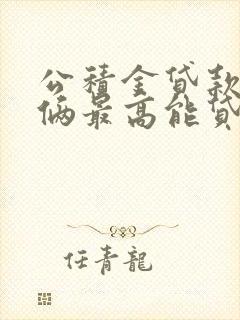 公積金貸款
倆最高能貸
任青龍